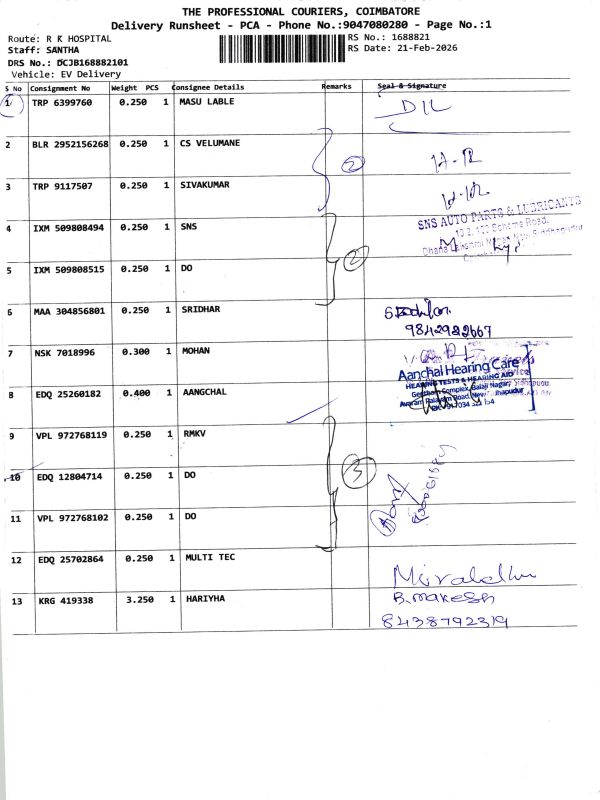 THE PROFESSIONAL COURIERS, COIMBATORE
Delivery Runsheet - PCA - Phone No.:9047080280 - Page No.:1
Route: R K HOSPITAL
RS No.: 1688821
Staff: SANTHA
RS Date: 21-Feb-2026
DRS No.: DCJB168882101
Vehicle: EV Delivery
S No Consignment No Weight PCS Consignee Details Remarks Seal & Signature
1 TRP 6399760 0.250 1 MASU LABLE
2 BLR 2952156268 0.250 1 CS VELUMANE
2
3 TRP 9117507 0.250 1 SIVAKUMAR
SNS AUTO PARTS & LUBRICANTS
4 IXM 509808494 0.250 1 SNS
2
5 IXM 509808515 0.250 1 DO
6 MAA 304856801 0.250 1 SRIDHAR
9842922667
7 NSK 7018996 0.300 1 MOHAN
Aanchal Hearing Care
HEARING TESTS & HEARING AID
8 EDQ 25260182 0.400 1 AANGCHAL
9 VPL 972768119 0.250 1 RMKV
3
10 EDQ 12804714 0.250 1 DO
11 VPL 972768102 0.250 1 DO
12 EDQ 25702864 0.250 1 MULTI TEC
13 KRG 419338 3.250 1 HARIYHA
B. Makesh
8438792319